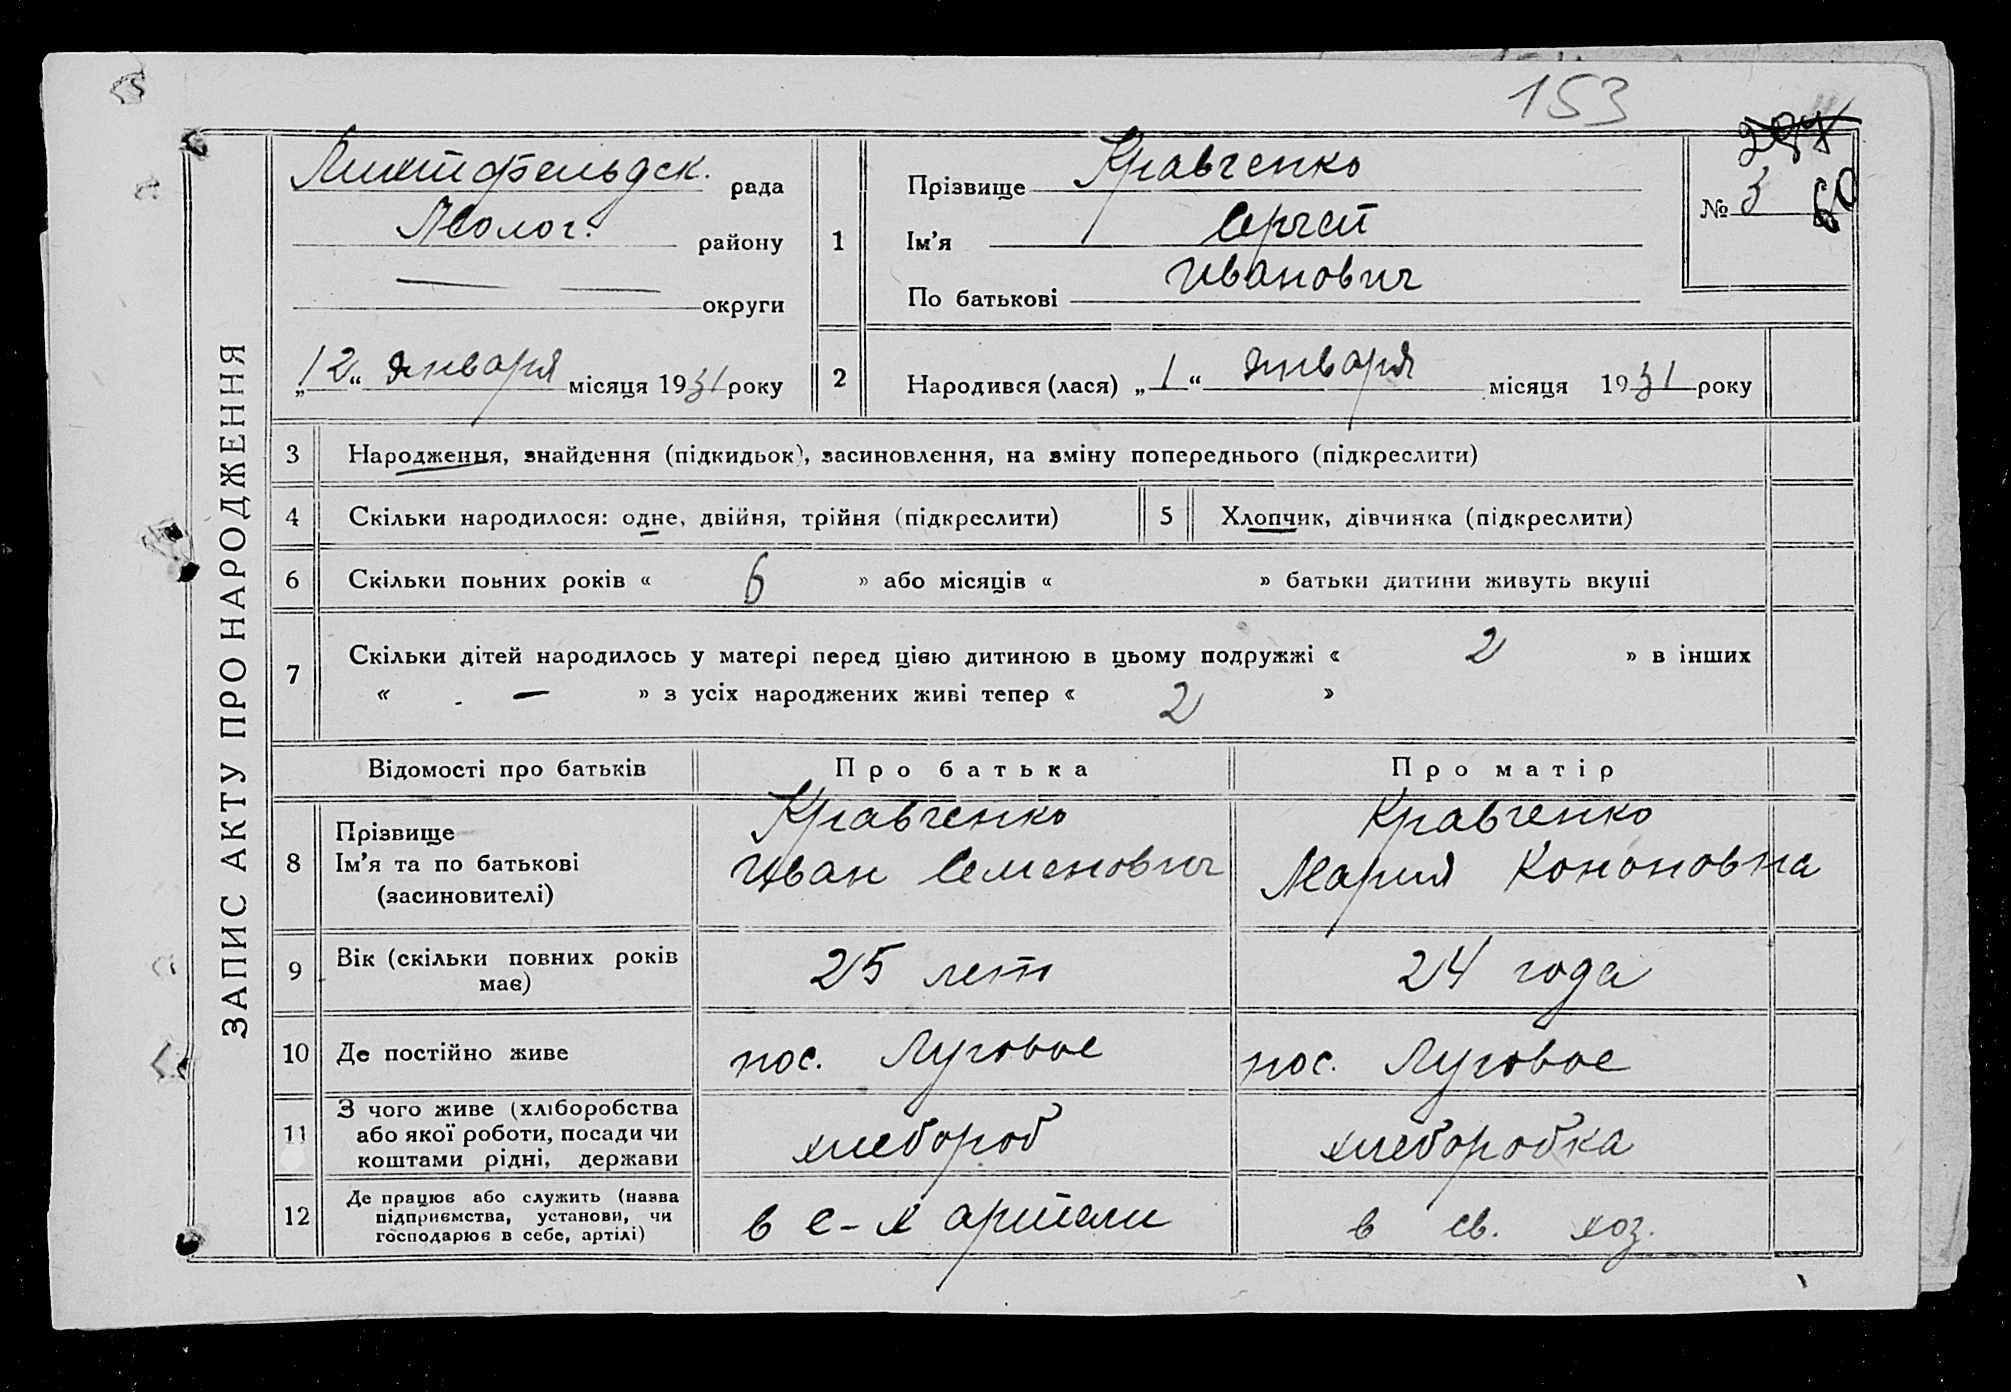 153
Лихтфельдск. рада
Молоч. району
округи
„12“ января місяця 1931 року
1
Прізвище Кравченко
Ім’я Сергей
По батькові Иванович
№ 3
60
2
Народився (лася) „1“ января місяця 1931 року
ЗАПИС АКТУ ПРО НАРОДЖЕННЯ
3 Народження, знайдення (підкидьок), засиновлення, на зміну попереднього (підкреслити)
4 Скільки народилося: одне, двійня, трійня (підкреслити)
5 Хлопчик, дівчинка (підкреслити)
6 Скільки повних років « 6 » або місяців « » батьки дитини живуть вкупі
7 Скільки дітей народилось у матері перед цією дитиною в цьому подружжі « 2 » в інших
« — » з усіх народжених живі тепер « 2 »
Відомості про батьків
Про батька
Про матір
8
Прізвище
Ім’я та по батькові
(засиновителі)
Кравченко
Иван Семенович
Кравченко
Мария Кононовна
9
Вік (скільки повних років
має)
25 лет
24 года
10 Де постійно живе
пос. Луговое
пос. Луговое
11
З чого живе (хліборобства
або якої роботи, посади чи
коштами рідні, держави
хлебороб
хлеборобка
12
Де працює або служить (назва
підприємства, установи, чи
господарює в себе, артілі)
в с-х артели
в св. хоз.